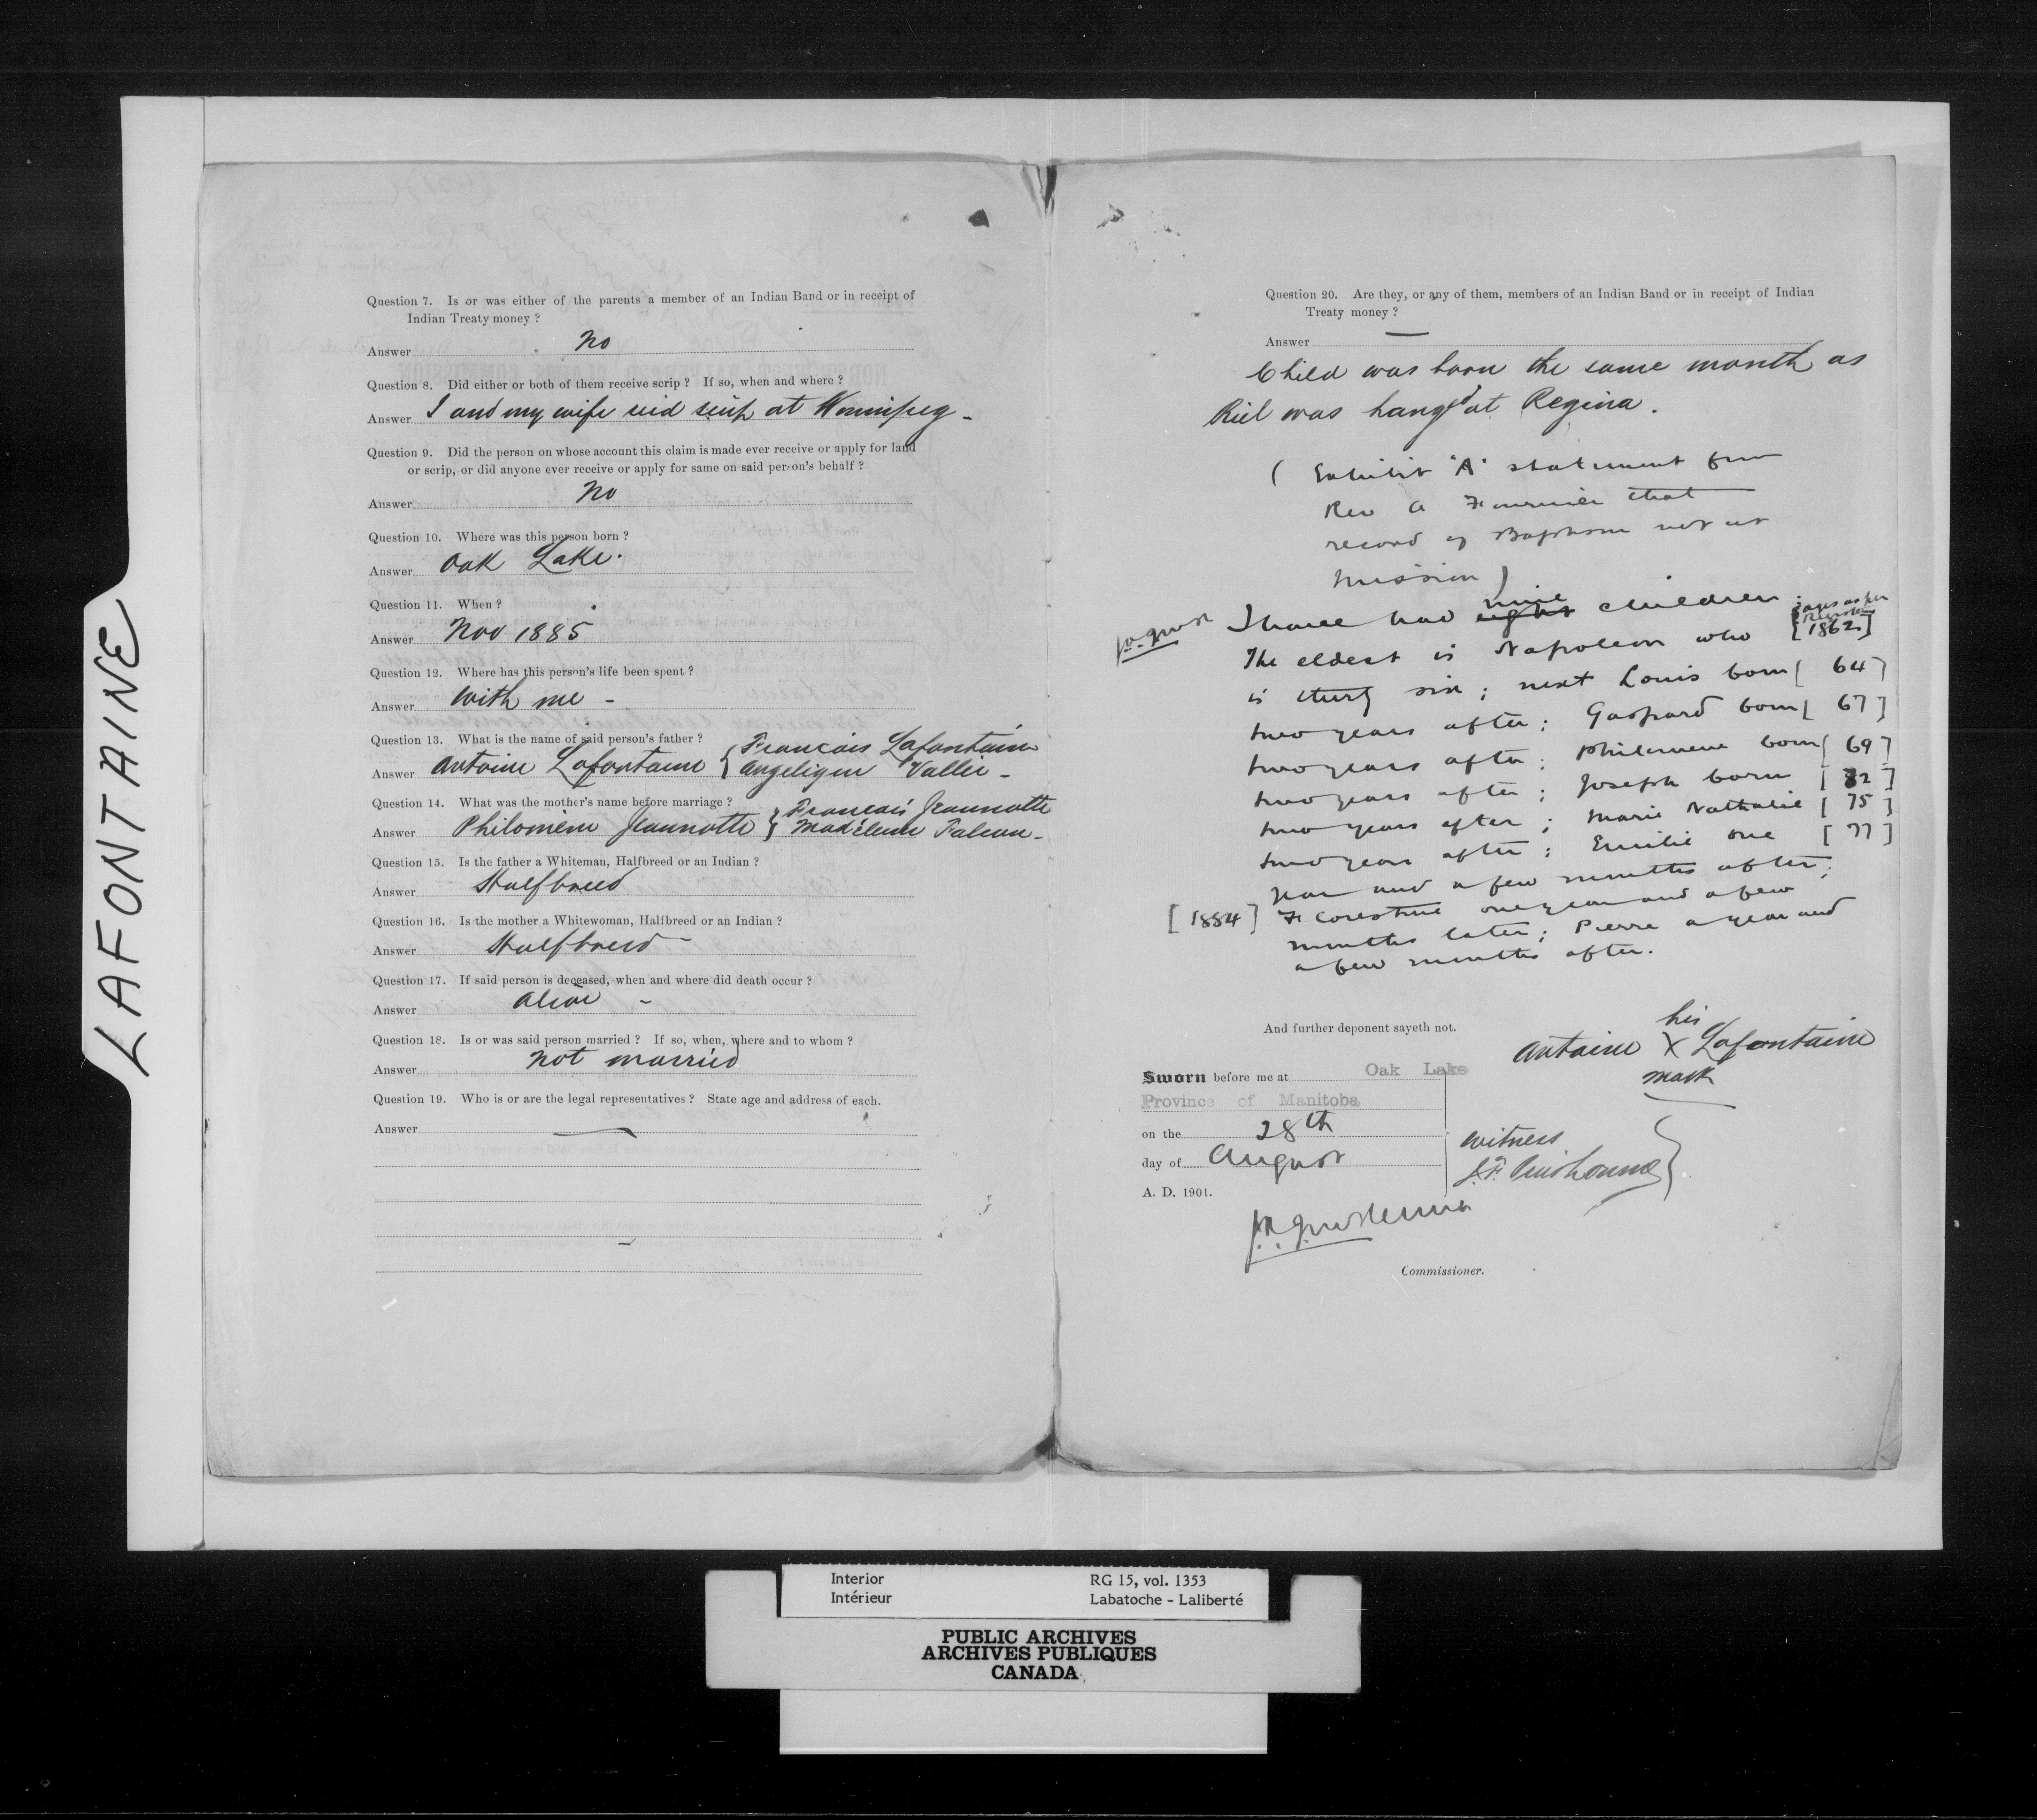 LAFONTAINE
Question 7. Is or was either of the parents a member of an Indian Band or in receipt of
Indian Treaty money ?
Answer No
Question 8. Did either or both of them receive scrip ? If so, when and where ?
Answer I and my wife did scrip at Winnipeg -
Question 9. Did the person on whose account this claim is made ever receive or apply for land
or scrip, or did anyone ever receive or apply for same on said person's behalf ?
Answer No
Question 10. Where was this person born ?
Answer Oak Lake.
Question 11. When ?
Answer Nov 1885
Question 12. Where has this person's life been spent ?
Answer With me -
Question 13. What is the name of said person's father ?
Answer Antoine Lafontaine { François Lafontaine
Angelique Vallie -
Question 14. What was the mother's name before marriage ?
Answer Philomène Jeannotte } Francois Jeannotte
Madeleine Falcon -
Question 15. Is the father a Whiteman, Halfbreed or an Indian ?
Answer Halfbreed
Question 16. Is the mother a Whitewoman, Halfbreed or an Indian ?
Answer Halfbreed -
Question 17. If said person is deceased, when and where did death occur ?
Answer Alive -
Question 18. Is or was said person married ? If so, when, where and to whom ?
Answer Not married
Question 19. Who is or are the legal representatives ? State age and address of each.
Answer —
Question 20. Are they, or any of them, members of an Indian Band or in receipt of Indian
Treaty money ?
Answer —
Child was born the same month as
Riel was hanged at Regina.
( Exhibit "A" statement from
Rev A Fournier that
record of Baptism not at
mission )
I have had eight nine children :
ages as per
Register
The eldest is Napoleon who [1862]
is thirty six ; next Louis born [ 64 ]
two years after ; Gaspard born [ 67 ]
two years after ; Philomene born [ 69 ]
two years after ; Joseph born [ 72 ]
two years after ; Marie Nathalie [ 75 ]
two years after ; Emilie one [ 77 ]
year and a few months after ;
[ 1884 ] Florestine one year and a few
months later ; Pierre a year and
a few months after.
And further deponent sayeth not.
his
Antoine X Lafontaine
mark
Sworn before me at Oak Lake
Province of Manitoba
on the 28th
day of August
A. D. 1901.
Witness
Commissioner.
Interior
Intérieur
RG 15, vol. 1353
Labatoche - Laliberté
PUBLIC ARCHIVES
ARCHIVES PUBLIQUES
CANADA